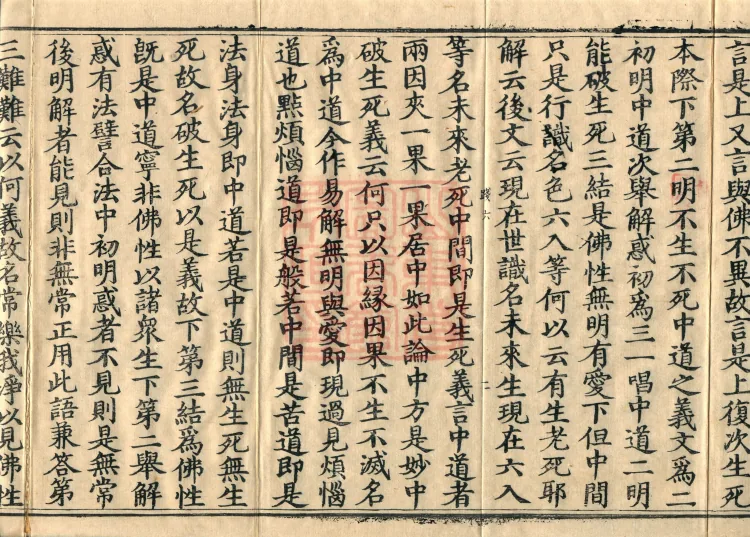 言是上又言與佛不異故言是上復次生死
本際下第二明不生不死中道之義文為二
初明中道次舉解惑初爲三一唱中道二明
能破生死三結是佛性無明有愛下但中間
只是行識名色六入等何以云有生老死耶
解云後文云現在世識名未來生現在六入
等名未來老死中間即是生死義言中道者
兩因夾一果一果居中如此論中方是妙中
破生死義云何只以因緣因果不生不滅名
爲中道今作易解無明與愛即現過見煩惱
道也點煩惱道即是般若中間是苦道即是
法身法身即中道若是中道則無生死無生
死故名破生死以是義故下第三結爲佛性
旣是中道寧非佛性以諸衆生下第二舉解
惑有法譬合法中初明惑者不見則是無常
後明解者能見則非無常正用此語兼答第
三難難云以何義故名常樂我淨以見佛性